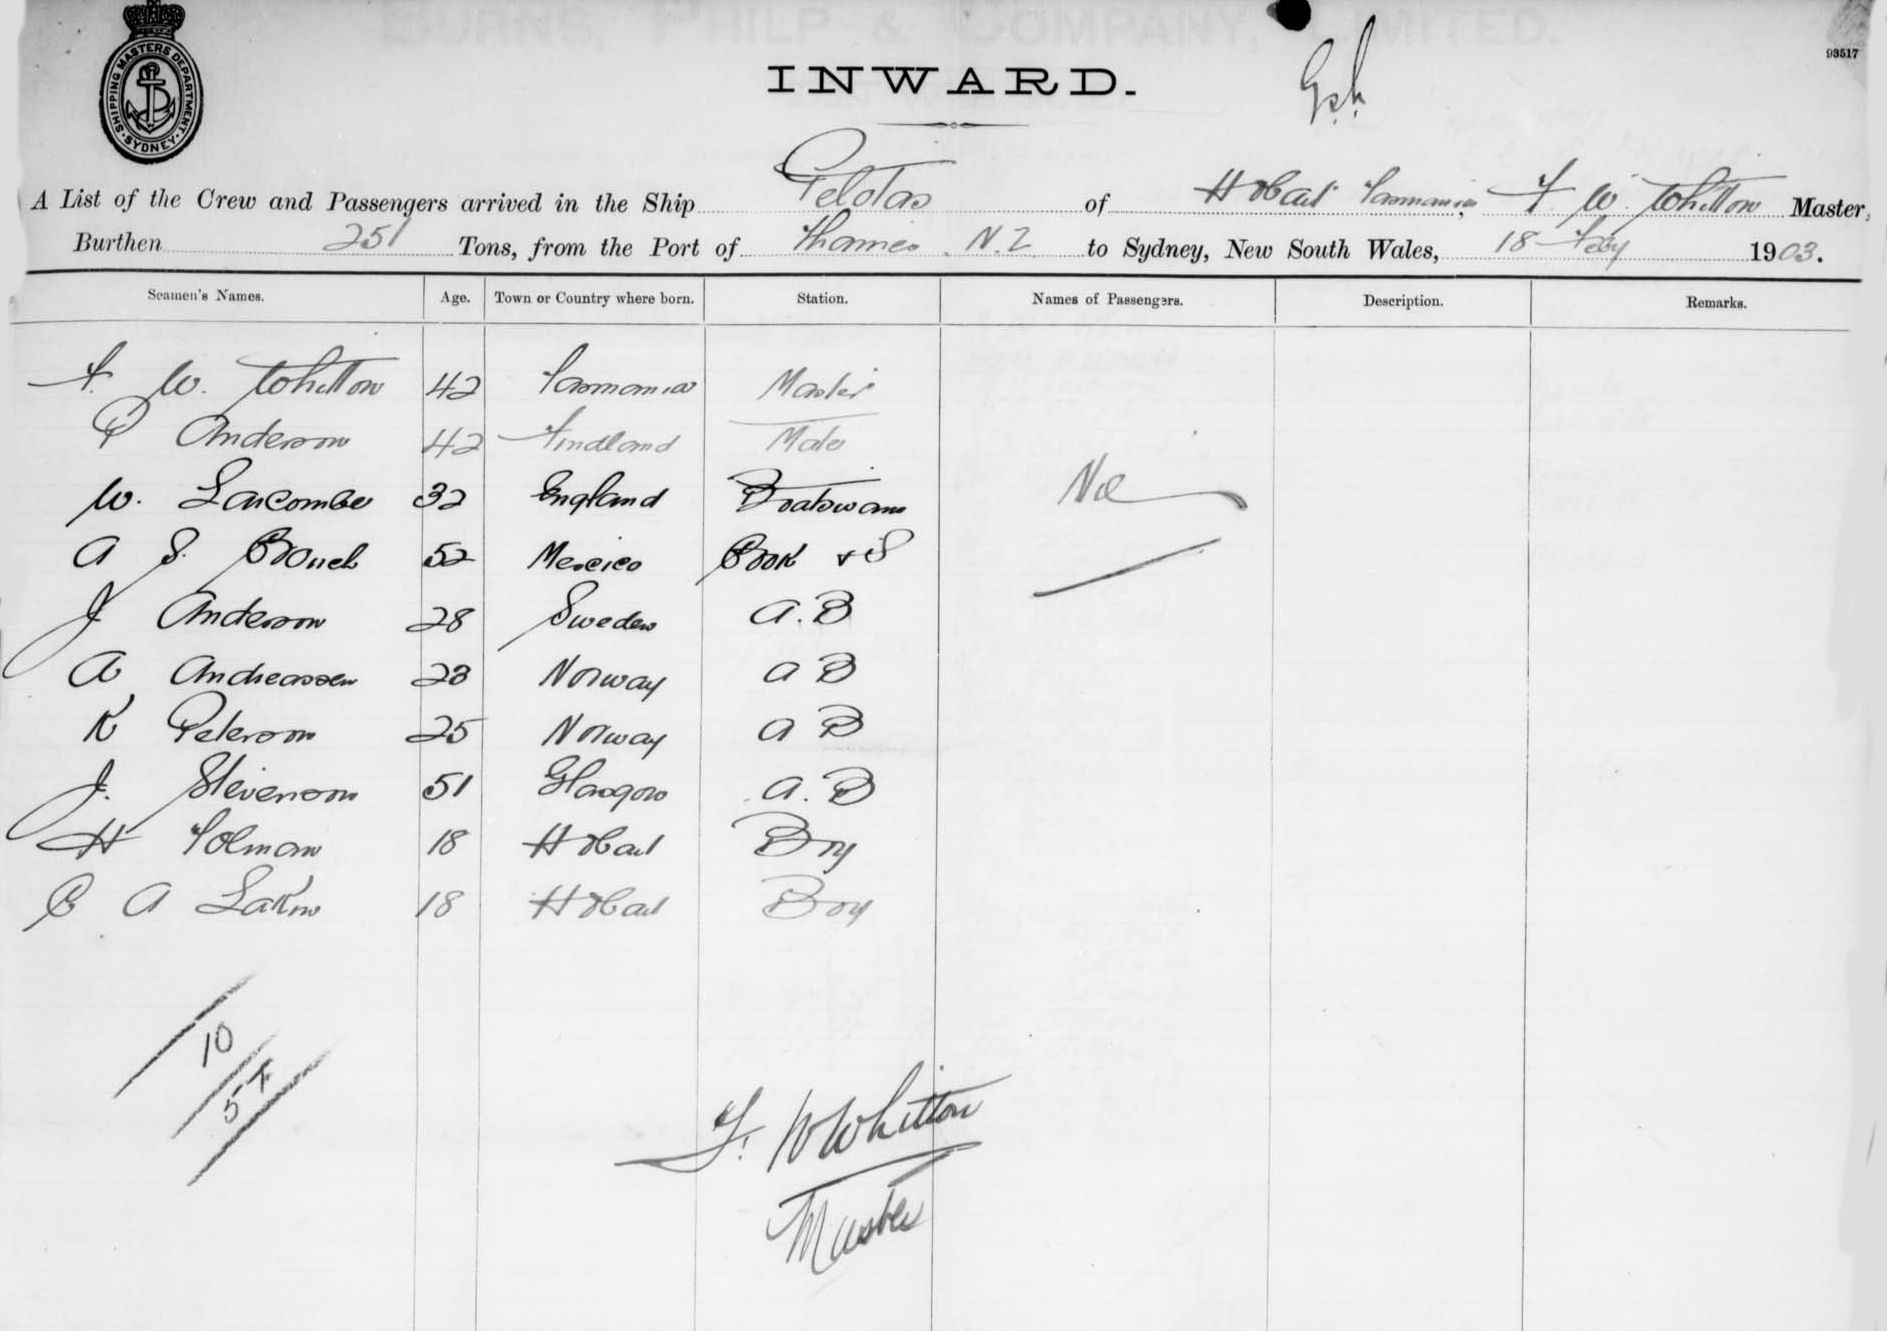 BURNS, PHILP & COMPANY, LIMITED.
SHIPPING MASTERS DEPARTMENT
SYDNEY
93517
INWARD.
A List of the Crew and Passengers arrived in the Ship Pelotas of Hobart Tasmania, F W. Whitton Master,
Burthen 251 Tons, from the Port of Thames N.Z to Sydney, New South Wales, 18 Feby 1903.
Seamen's Names. Age. Town or Country where born. Station. Names of Passengers. Description. Remarks.
F. W. Whitton 42 Tasmania Master
P Anderson 42 Findland Mate
W. Larcombe 32 England Boatswain Nil
A S. 52 Mexico Cook & S
J Anderson 28 Sweden A.B
A Andreassen 23 Norway A B
K Peterson 25 Norway A B
J. Stevenson 51 Glasgow A.B
H Tolman 18 Hobart Boy
C A Lakin 18 Hobart Boy
10
5 F
F. W Whitton
Master